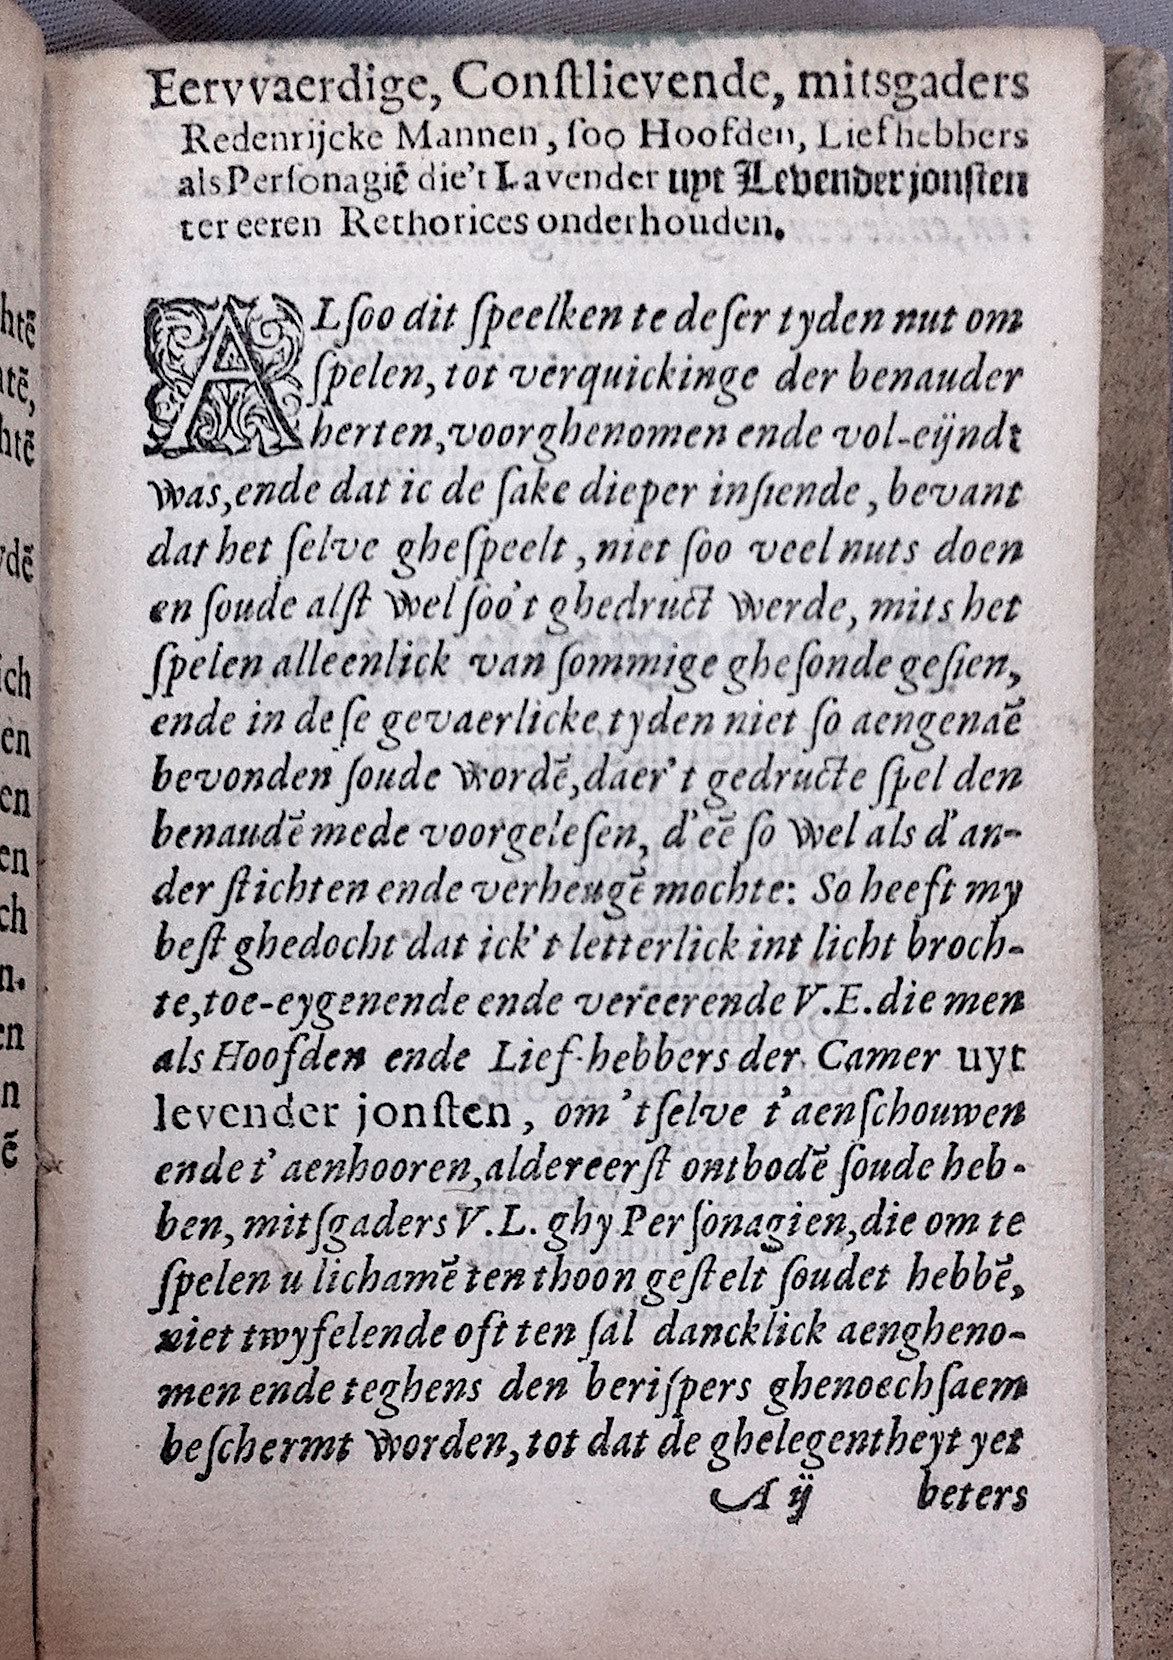 Eervvaerdige, Conſtlievende, mitsgaders
Redenrijcke Mannen, ſoo Hoofden, Liefhebbers
als Perſonagiẽ die't Lavender uyt Levender jonſten
ter eeren Rethorices onderhouden.
ALſoo dit ſpeelken te deſer tyden nut om
ſpelen, tot verquickinge der benauder
herten, voorghenomen ende vol-eijndt
was, ende dat ic de ſake dieper inſiende, bevant
dat het ſelve gheſpeelt, niet ſoo veel nuts doen
en ſoude alſt wel ſoo't ghedruct werde, mits het
ſpelen alleenlick van ſommige gheſonde geſien,
ende in deſe gevaerlicke tyden niet ſo aengenaẽ
bevonden ſoude wordẽ, daer't gedructe ſpel den
benaudẽ mede voorgeleſen, d'eẽ ſo wel als d'an-
der ſtichten ende verheugẽ mochte: So heeft my
beſt ghedocht dat ick't letterlick int licht broch-
te, toe-eygenende ende vereerende V.E. die men
als Hoofden ende Lief-hebbers der Camer uyt
levender jonſten, om 't ſelve t'aenſchouwen
ende t'aenhooren, aldereerſt ontbodẽ ſoude heb-
ben, mitſgaders V.L. ghy Perſonagien, die om te
ſpelen u lichamẽ ten thoon geſtelt ſoudet hebbẽ,
niet twyfelende oft ten ſal dancklick aengheno-
men ende teghens den beriſpers ghenoechſaem
beſchermt worden, tot dat de ghelegentheyt yet
A ij beters
htẽ
tẽ,
htẽ
dẽ
ich
en
en
en
ch
n.
en
n
ẽ